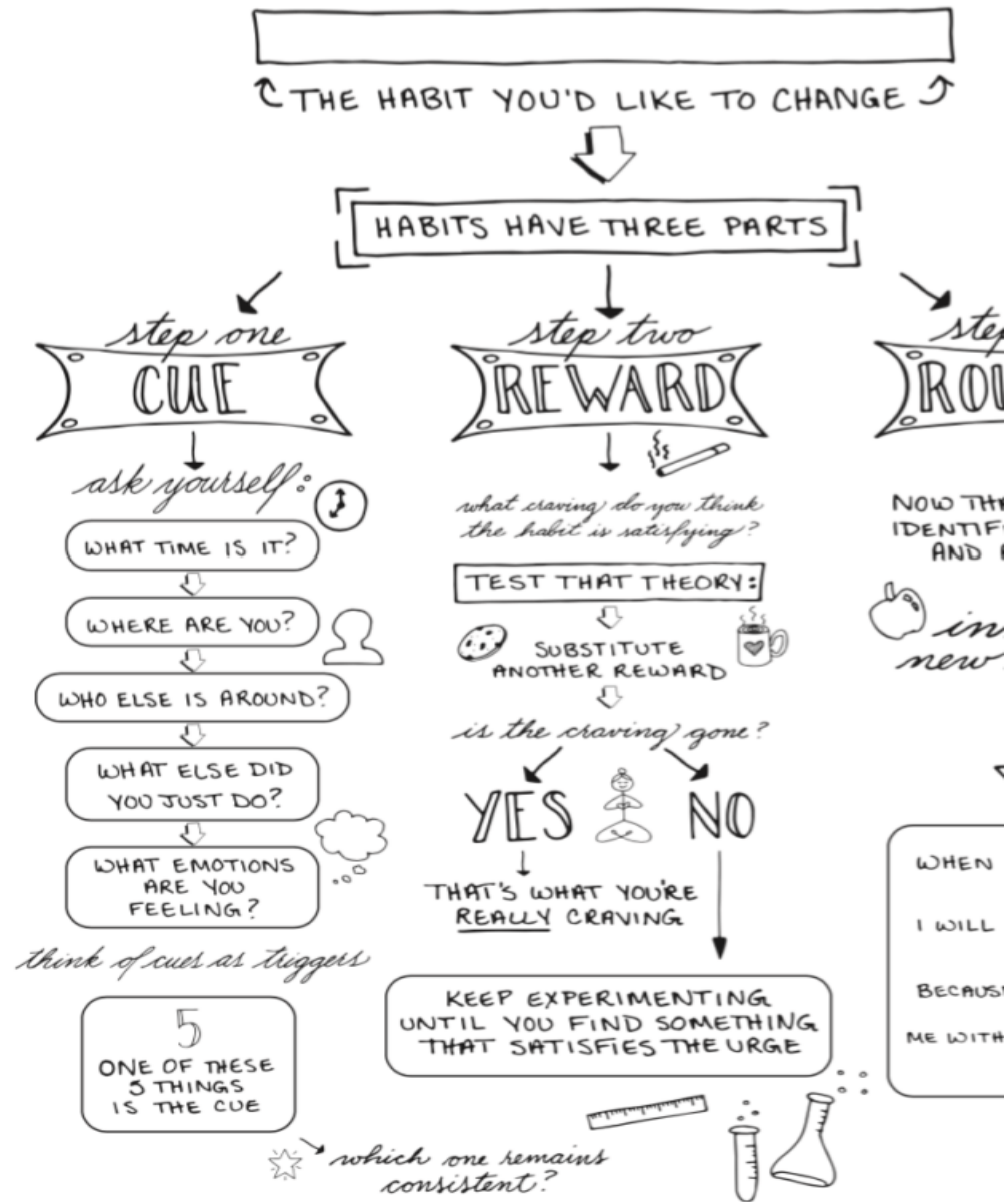 THE HABIT YOU'D LIKE TO CHANGE
HABITS HAVE THREE PARTS
step one
CUE
ask yourself:
WHAT TIME IS IT?
WHERE ARE YOU?
WHO ELSE IS AROUND?
WHAT ELSE DID
YOU JUST DO?
WHAT EMOTIONS
ARE YOU
FEELING?
think of cues as triggers
5
ONE OF THESE
5 THINGS
IS THE CUE
which one remains
consistent?
step two
REWARD
what craving do you think
the habit is satisfying?
TEST THAT THEORY:
SUBSTITUTE
ANOTHER REWARD
is the craving gone?
YES
NO
THAT'S WHAT YOU'RE
REALLY CRAVING
KEEP EXPERIMENTING
UNTIL YOU FIND SOMETHING
THAT SATISFIES THE URGE
step
NOW
AND
new
WHEN
I WILL
ME WITH